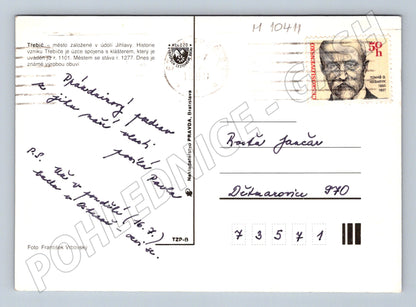 Třebíč – město založené v údolí Jihlavy. Historie
vzniku Třebíče je úzce spojena s klášterem, který je
uváděn již r. 1101. Městem se stává r. 1277. Dnes je
známé výrobou obuvi
M 10411
ČESKOSLOVENSKO
50 h
TOMÁŠ G.
MASARYK
1850
1937
Prázdninový pozdrav
z jihu naší vlasti
posílá Pavla
P.S. Už v pondělí (16.7.)
budu v
Nakladatelství PRAVDA, Bratislava
Jančár
Dětmarovice 970
7 3 5 7 1
TZP-B
Foto: František
POHLEDNICE - CASH